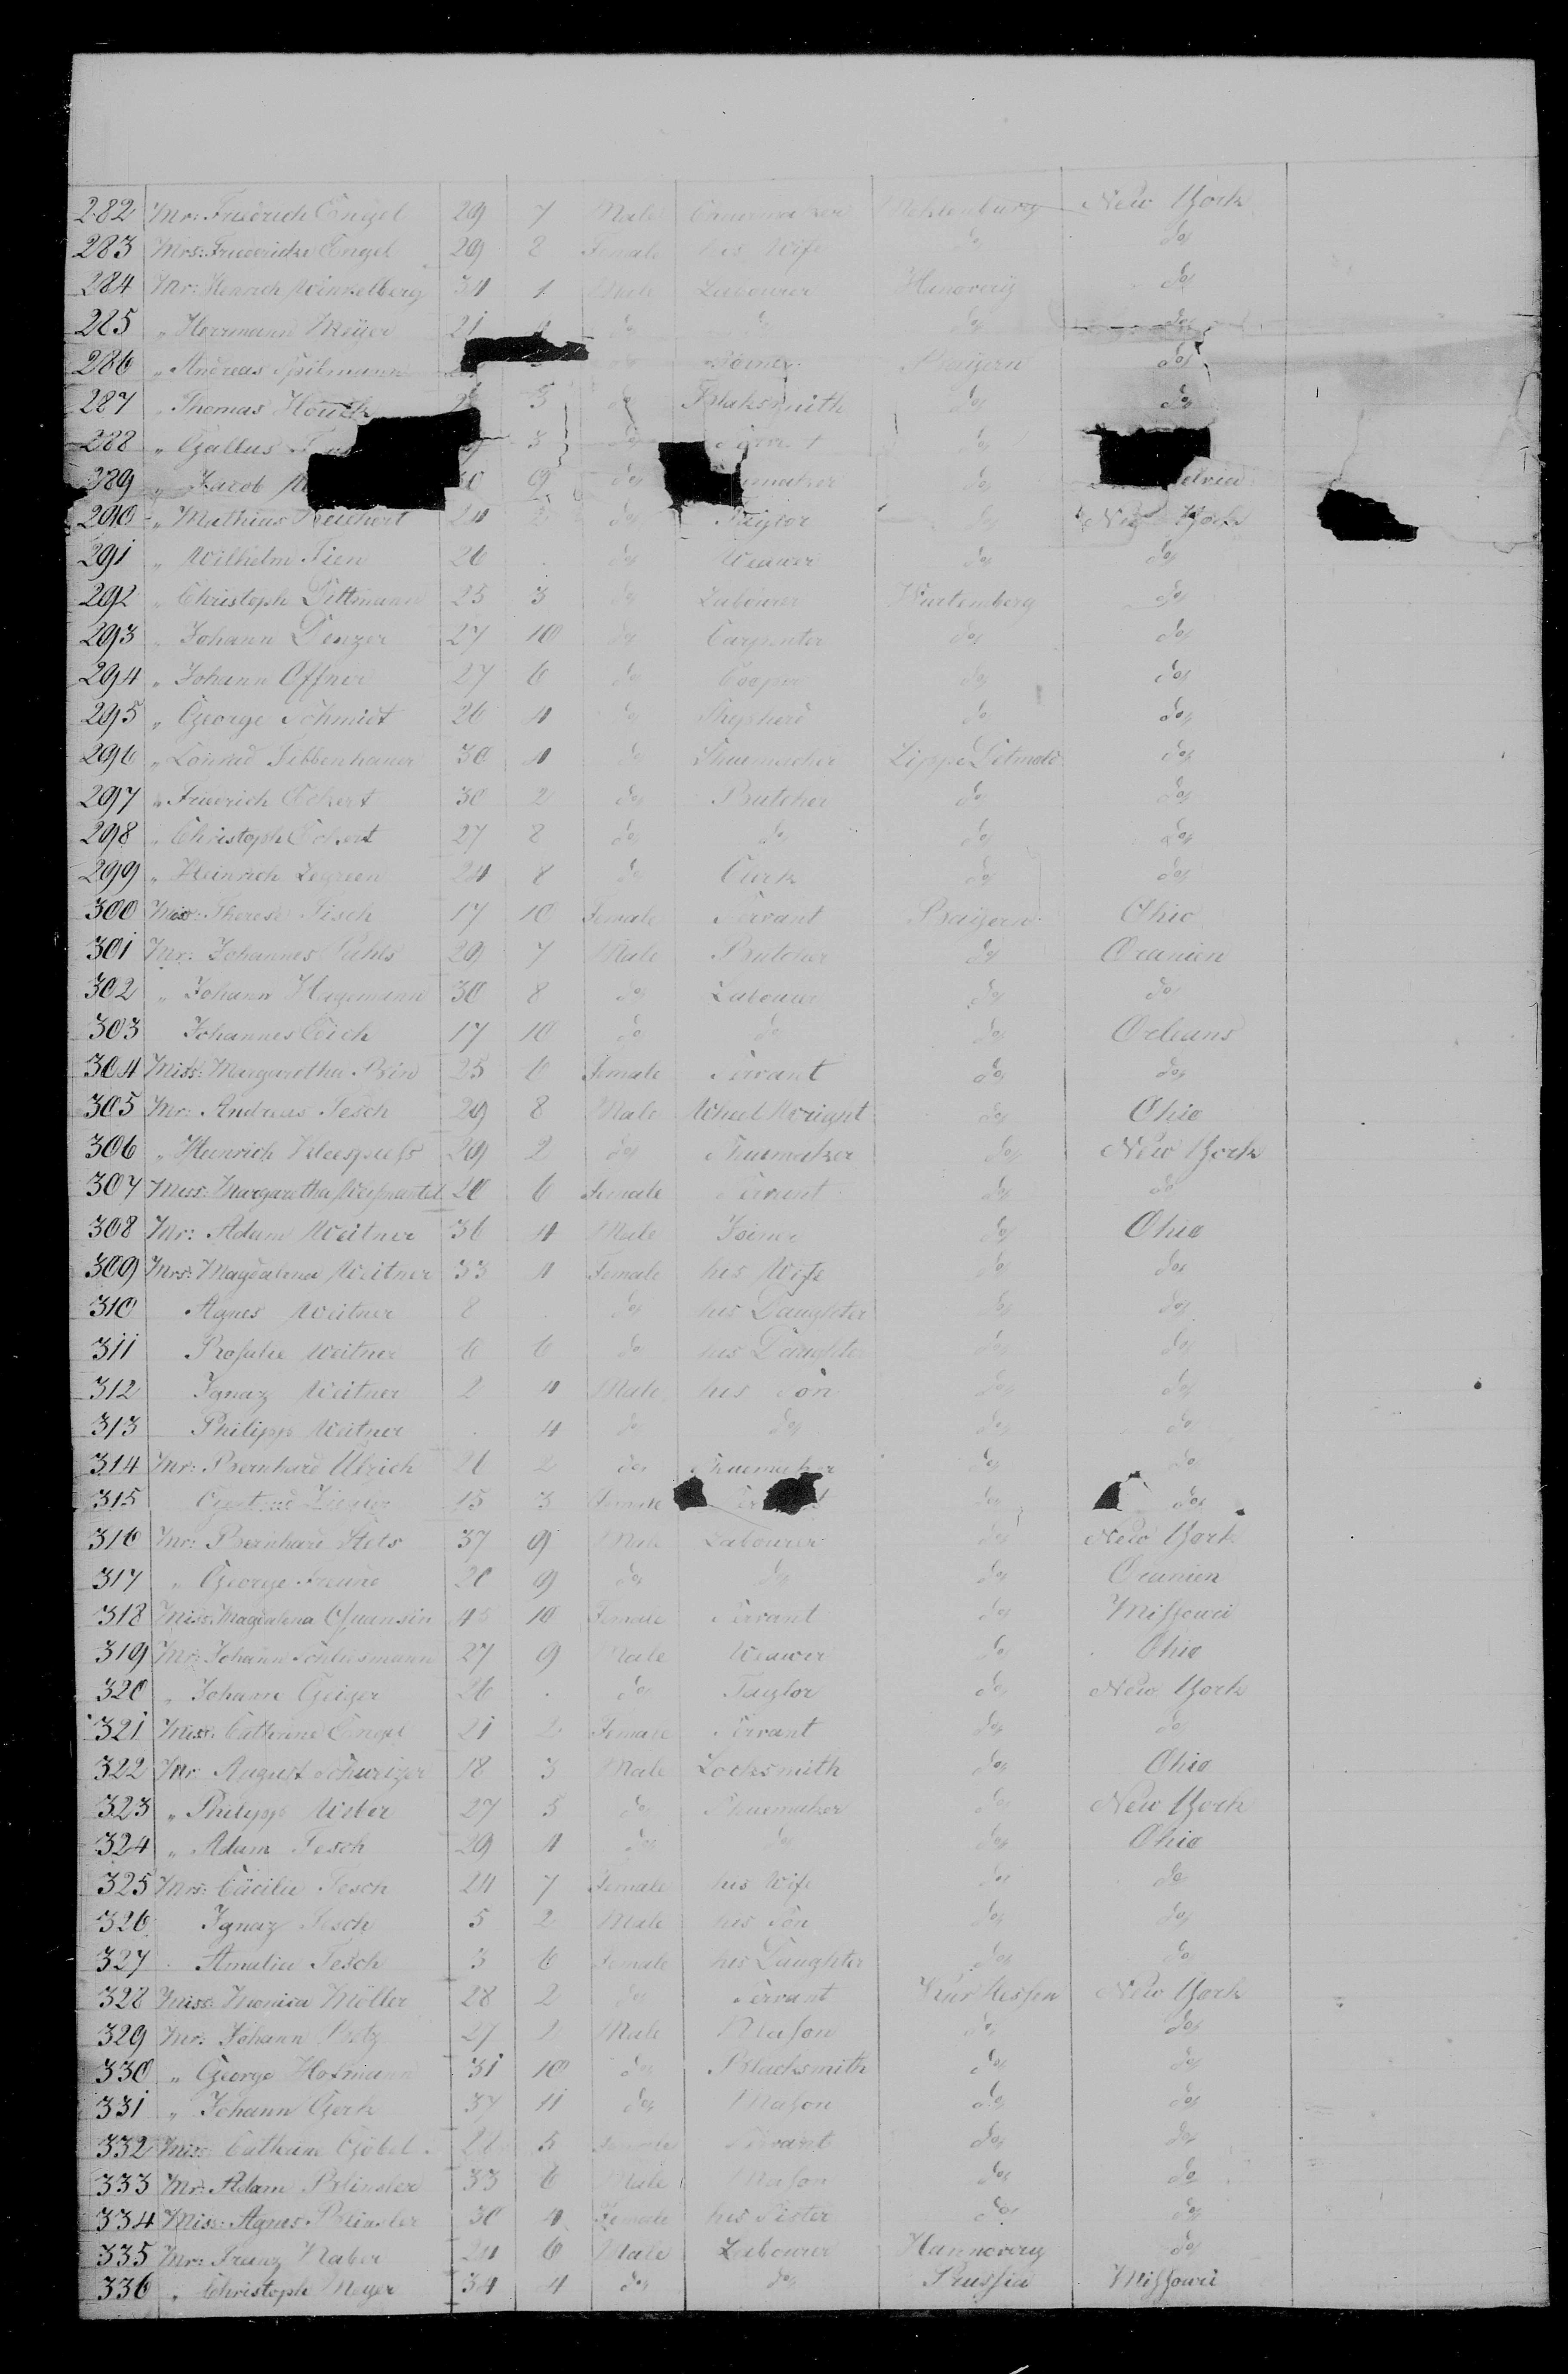 282 Mr: Friedrich Engel 29 7 Male Meklenburg New York
283 Mrs: Friedericke Engel 29 8 Female his Wife do do
284 Mr: Henrich Winkelberg 34 1 Male Labourer Hanovery do
285 " Herrmann Meÿer 21 do do do do
286 " Andreas Spilmann do Joiner Baÿern do
287 " Thomas Houck 5 do Blaksmith do do
288 " Gallus 3 do do
289 " Jacob 9 do do
290 " Mathias Reichert 24 do Taylor do New York
291 " Wilhelm Fien 26 . do Weawer do do
292 " Christoph Dittmann 25 3 do Labourer Wurtemberg do
293 " Johann Denzer 27 10 do Carpenter do do
294 " Johann Offner 27 6 do Cooper do do
295 " George Schmidt 26 4 do Shepherd do do
296 " Conrad Tibbenhauer 30 4 do Shumacher Lippe Detmold do
297 " Friedrich Eckert 30 2 do Butcher do do
298 " Christoph Eckert 27 8 do do do do
299 " Heinrich Legreen 24 8 do Clerk do do
300 Miss: Therese Fisch 17 10 Female Servant Baÿern Ohio
301 Mr: Johannes Pahls 29 7 Male Butcher do Oranien
302 " Johann Hagemann 30 8 do Labourer do do
303 Johannes Eich 17 10 do do do Orleans
304 Miss: Margaretha Bin 25 6 Female Servant do do
305 Mr: Andreas Fesch 29 8 Male Wheel Wright do Ohio
306 " Heinrich Kleespiess 29 2 do Shuemaker do New York
307 Miss: Margaretha Weissmantel 20 6 Female Servant do do
308 Mr: Adam Weitner 36 4 Male Joiner do Ohio
309 Mrs: Magdalena Weitner 33 4 Female his Wife do do
310 Agnes Weitner 8 . do his Daughter do do
311 Rosalie Weitner 6 6 do his Daughter do do
312 Ignaz Weitner 2 4 Male his Son do do
313 Philipp Weitner . 4 do do do do
314 Mr: Bernhard Ulrich 21 2 do Shuemaker do do
315 Gertrud Ziegler 15 3 Female do do
316 Mr: Bernhard Stets 37 9 Male Labourer do New York
317 " George Freund 20 9 do do do Oranien
318 Miss: Magdalena 45 10 Female Servant do Missouri
319 Mr: Johann Schliesmann 27 9 Male Weawer do Ohio
320 " Johann Geiger 26 . do Taylor do New York
321 Miss: Catherine Engel 21 2 Female Servant do do
322 Mr August Schweizer 18 3 Male Locksmith do Ohio
323 " Philipp Weber 27 5 do Shuemaker do New York
324 " Adam Fesch 29 4 do do do Ohio
325 Mrs: Cäcilie Fesch 24 7 Female his Wife do do
326 Ignaz Fesch 5 2 Male his Son do do
327 Amalia Fesch 3 6 Female his Daughter do do
328 Miss: Monica Möller 28 2 do Servant Kur Hessen New York
329 Mr: Johann Betz 27 2 Male Mason do do
330 " George Hofmann 31 10 do Blacksmith do do
331 " Johann Gerk 37 11 do Mason do do
332 Miss: Catharine Göbel 22 5 Female Servant do do
333 Mr: Adam Blinsler 33 6 Male Mason do do
334 Miss: Agnes Blinsler 30 4 Female his Sister do do
335 Mr: Franz Naber 24 6 Male Labourer Hannovery do
336 " Christoph Meyer 34 4 do do Prussia Missouri